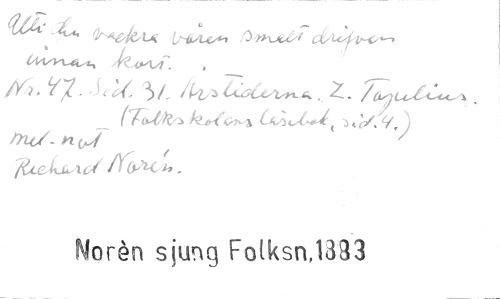 Uti den vackra våren smalt drifvan
innan kort.
Nr. 47. Sid. 31. Årstiderna. Z. Topelius.
(Folkskolans läsebok, sid. 4.)
med not
Richard Norén.
Norèn sjung Folksn,1883